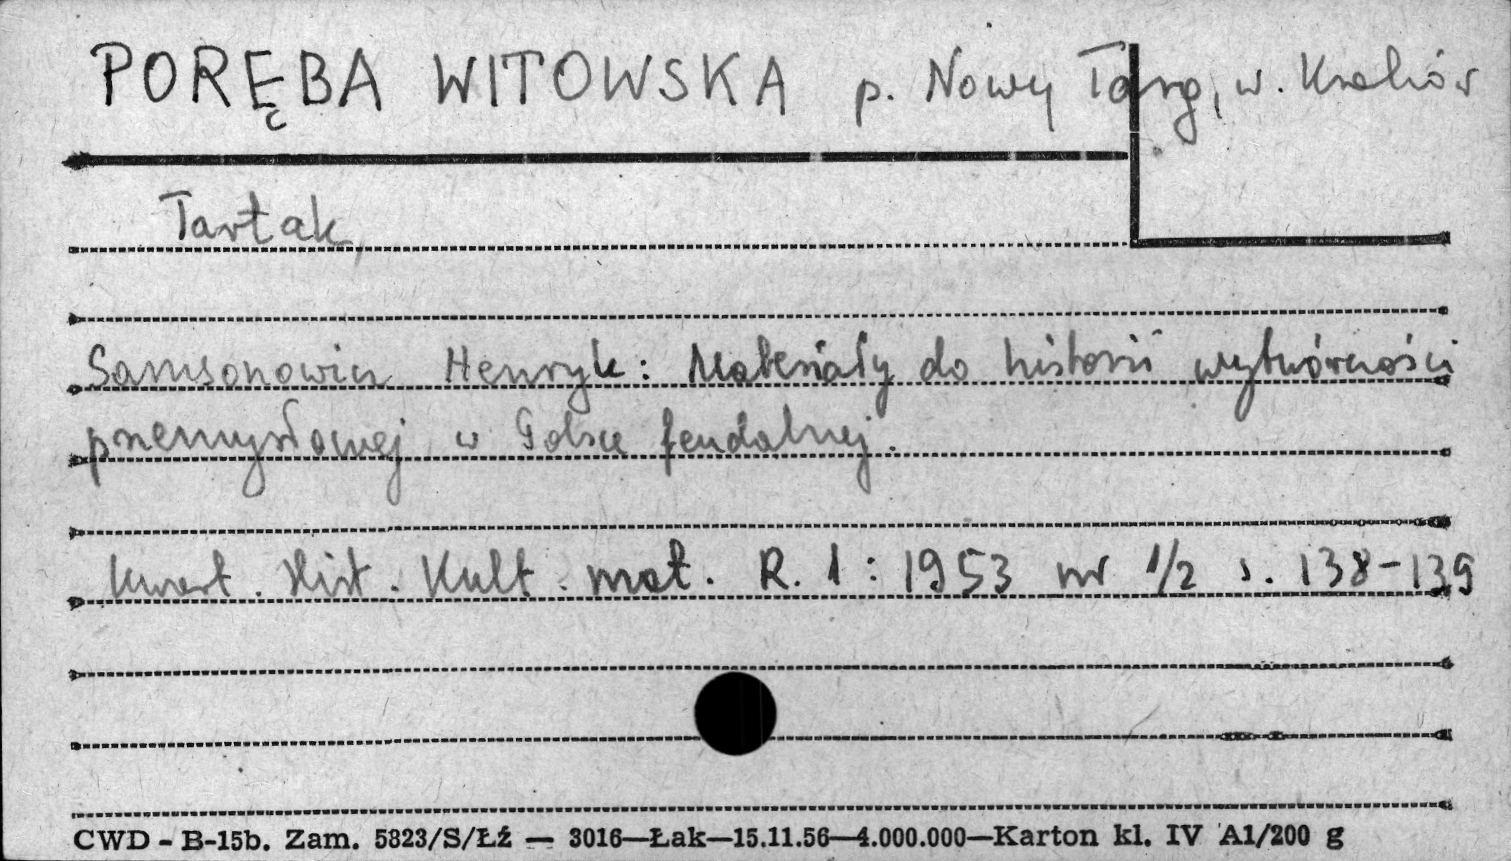 PORĘBA WITOWSKA p. Nowy Targ, w. Kraków
Tartak,
Samsonowicz Henryk: Materiały do historii wytwórczości
przemysłowej w Polsce feudalnej.
Kwart. Hist. Kult. mat. R. 1: 1953 nr 1/2 s. 138-139
CWD - B-15b. Zam. 5823/S/Łź — 3016—Łak—15.11.56—4.000.000—Karton kl. IV A1/200 g